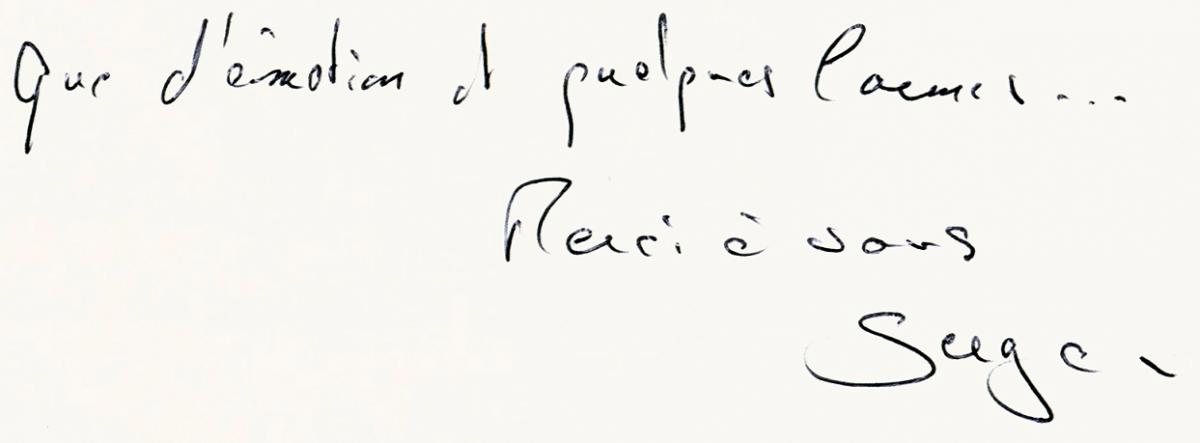 Que d'émotion et quelques larmes...
Merci à vous
Serge.